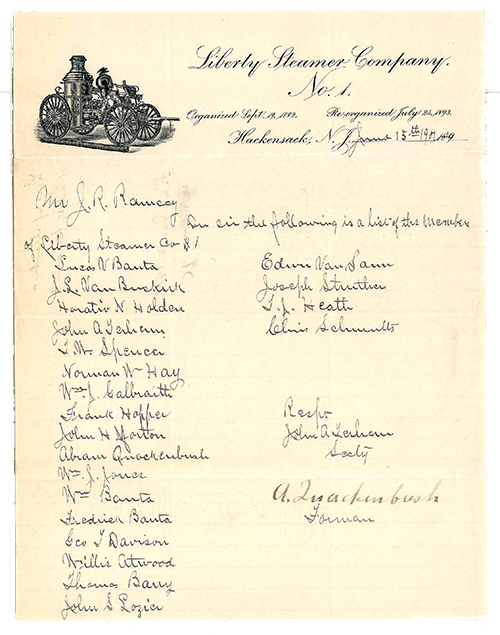 Liberty Steamer Company,
No. 1.
Organized Sept. 19, 1882. Re-organized July 24, 1893.
Hackensack, N. J. June 15th 190
Mr J. R. Ramsey
Dr sir the following is a list of the Members
of Liberty Steamer Co # 1
Lucas V Banta
J. L. Van Buskirk
Horatio N Holden
John A Terhem
T. M. Spencer
Norman W Hay
Wm J. Galbraith
Frank Hopper
John H Morton
Abram Quackenbush
Wm. J. Jones
Wm Banta
Fredrick Banta
Geo T Davison
Willis Atwood
Thomas Barry
John S Lozier
Edwin Van Saun
Joseph Struther
T. J. Heath
Chris Schmults
Respt
John A Terhem
Secty
A. Quackenbush
Forman